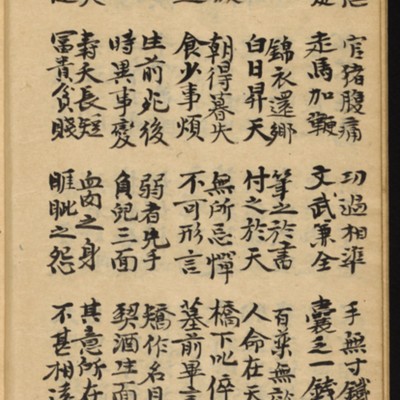 官猪腹痛 功過相準 手無寸鐵
走馬加鞭 文武兼全 囊乏一錢
錦衣還鄉 筆之於書 百藥無
白日昇天 付之於天 人命在天
朝得暮失 無所忌憚 橋下叱倅
食少事煩 不可形言 墓前
生前死後 弱者先手 矯作名目
時異事變 負兒三面 契酒生面
壽夭長短 血肉之身 其意所在
富貴貧賤 睚眦之怨 不甚相遠